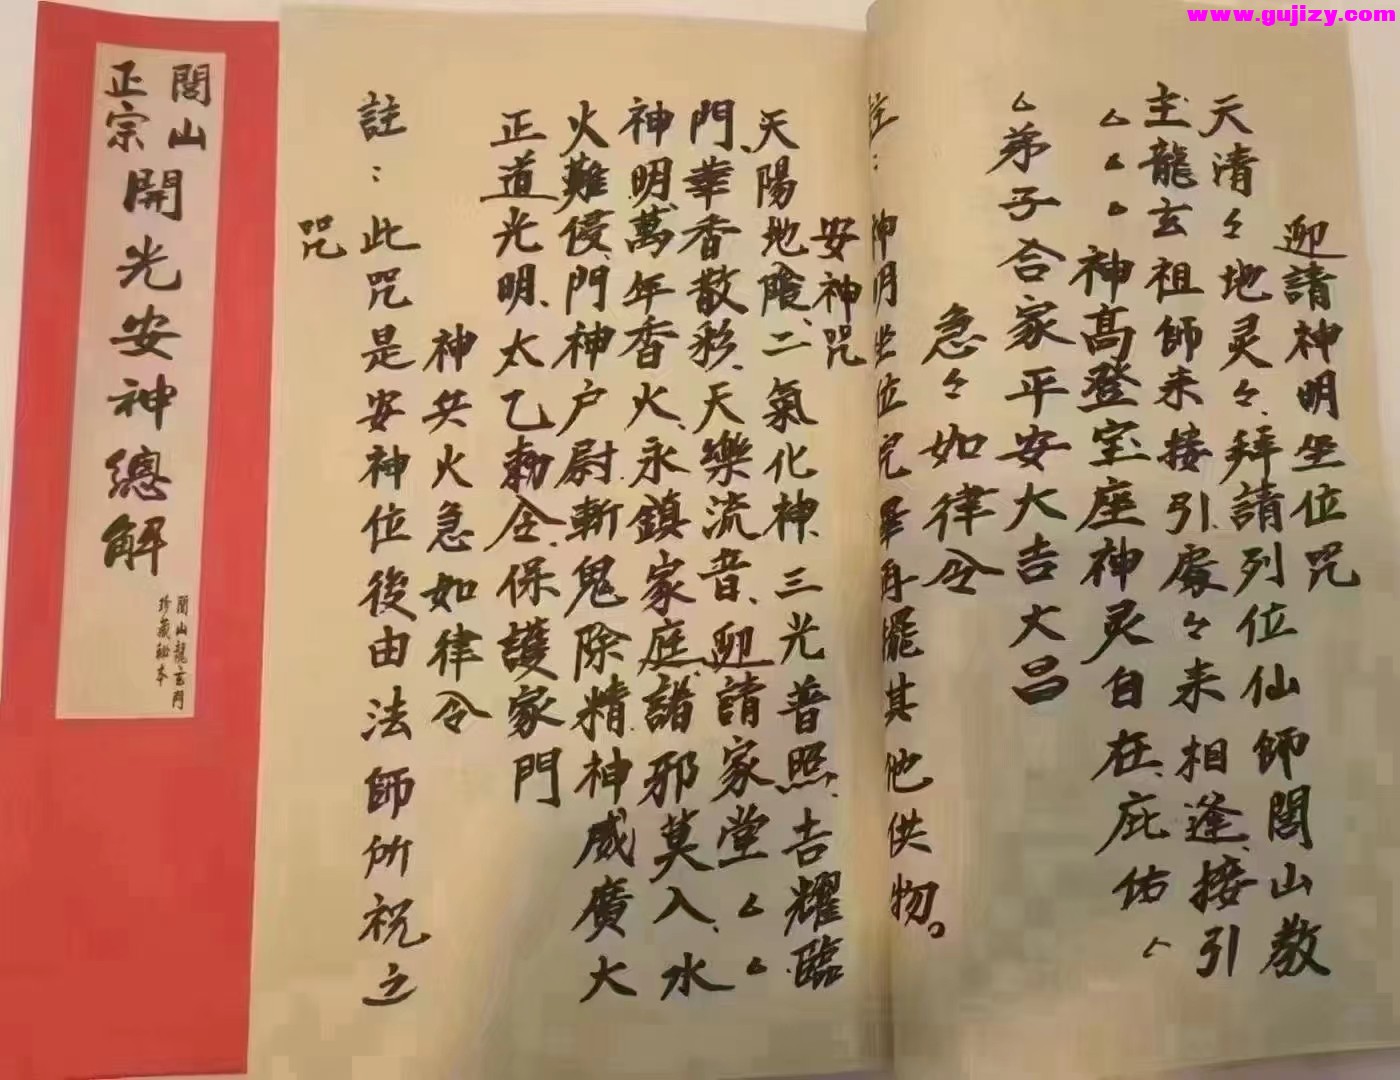 www.gujizy.com
閭山
正宗
開光安神總解
閭山龍玄門
珍藏秘本
迎請神明坐位咒
天清々地灵々拜請列位仙師閭山教
主龍玄祖師来接引處々来相逢接引
△△△神高登宝座神灵自在庇佑△
△弟子合家平安大吉大昌
急々如律令
註：神明坐位完畢再擺其他供物。
安神咒
天陽地陰、二氣化神、三光普照、吉耀臨
門、華香散彩、天樂流音、迎請家堂△△
神明、萬年香火、永鎮家庭、諸邪莫入、水
火難侵、門神户尉、斬鬼除精、神威廣大
正道光明、太乙勅令、保護家門
神兵火急如律令
註：此咒是安神位後由法師所祝之
咒